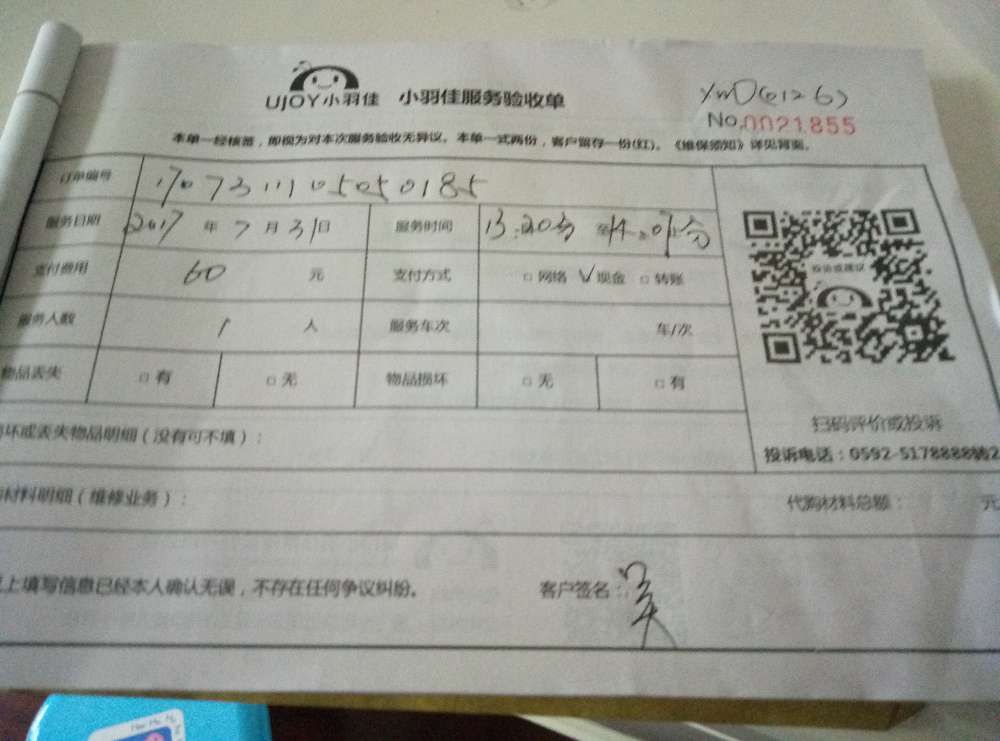 UJOY小羽佳 小羽佳服务验收单
XMD(6126)
No.0021855
本单一经核签，即视为对本次服务验收无异议。本单一式两份，客户留存一份(红)。《维保须知》详见背面。
订单编号 1707311105050185
服务日期 2017 年 7 月 31 日 服务时间 13:20分 至 14:01分
支付费用 60 元 支付方式 □ 网络 √ 现金 □ 转账
服务人数 1 人 服务车次 车/次
物品丢失 □ 有 □ 无 物品损坏 □ 无 □ 有
投诉或建议
扫码评价或投诉
投诉电话：0592-5178888转2
坏或丢失物品明细（没有可不填）：
材料明细（维修业务）： 代购材料总额： 元
上填写信息已经本人确认无误，不存在任何争议纠纷。 客户签名：